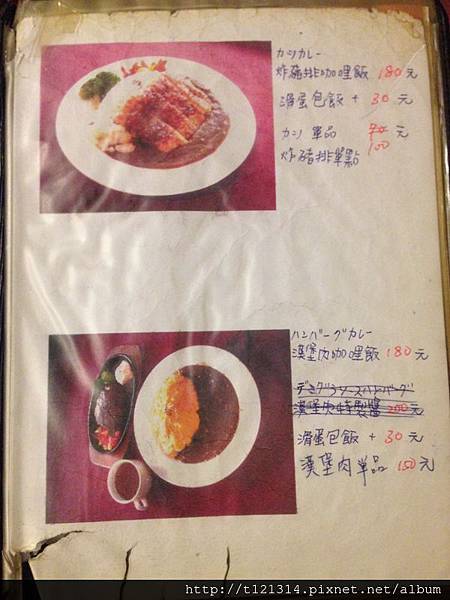 カツカレー
炸豬排咖哩飯 180元
滑蛋包飯 + 30 元
カツ 單品 70 元
100
炸豬排單點
ハンバーグカレー
漢堡肉咖哩飯 180元
漢堡肉特製醬 200元
滑蛋包飯 + 30 元
漢堡肉單品 150元
http://t121314.pixnet.net/album